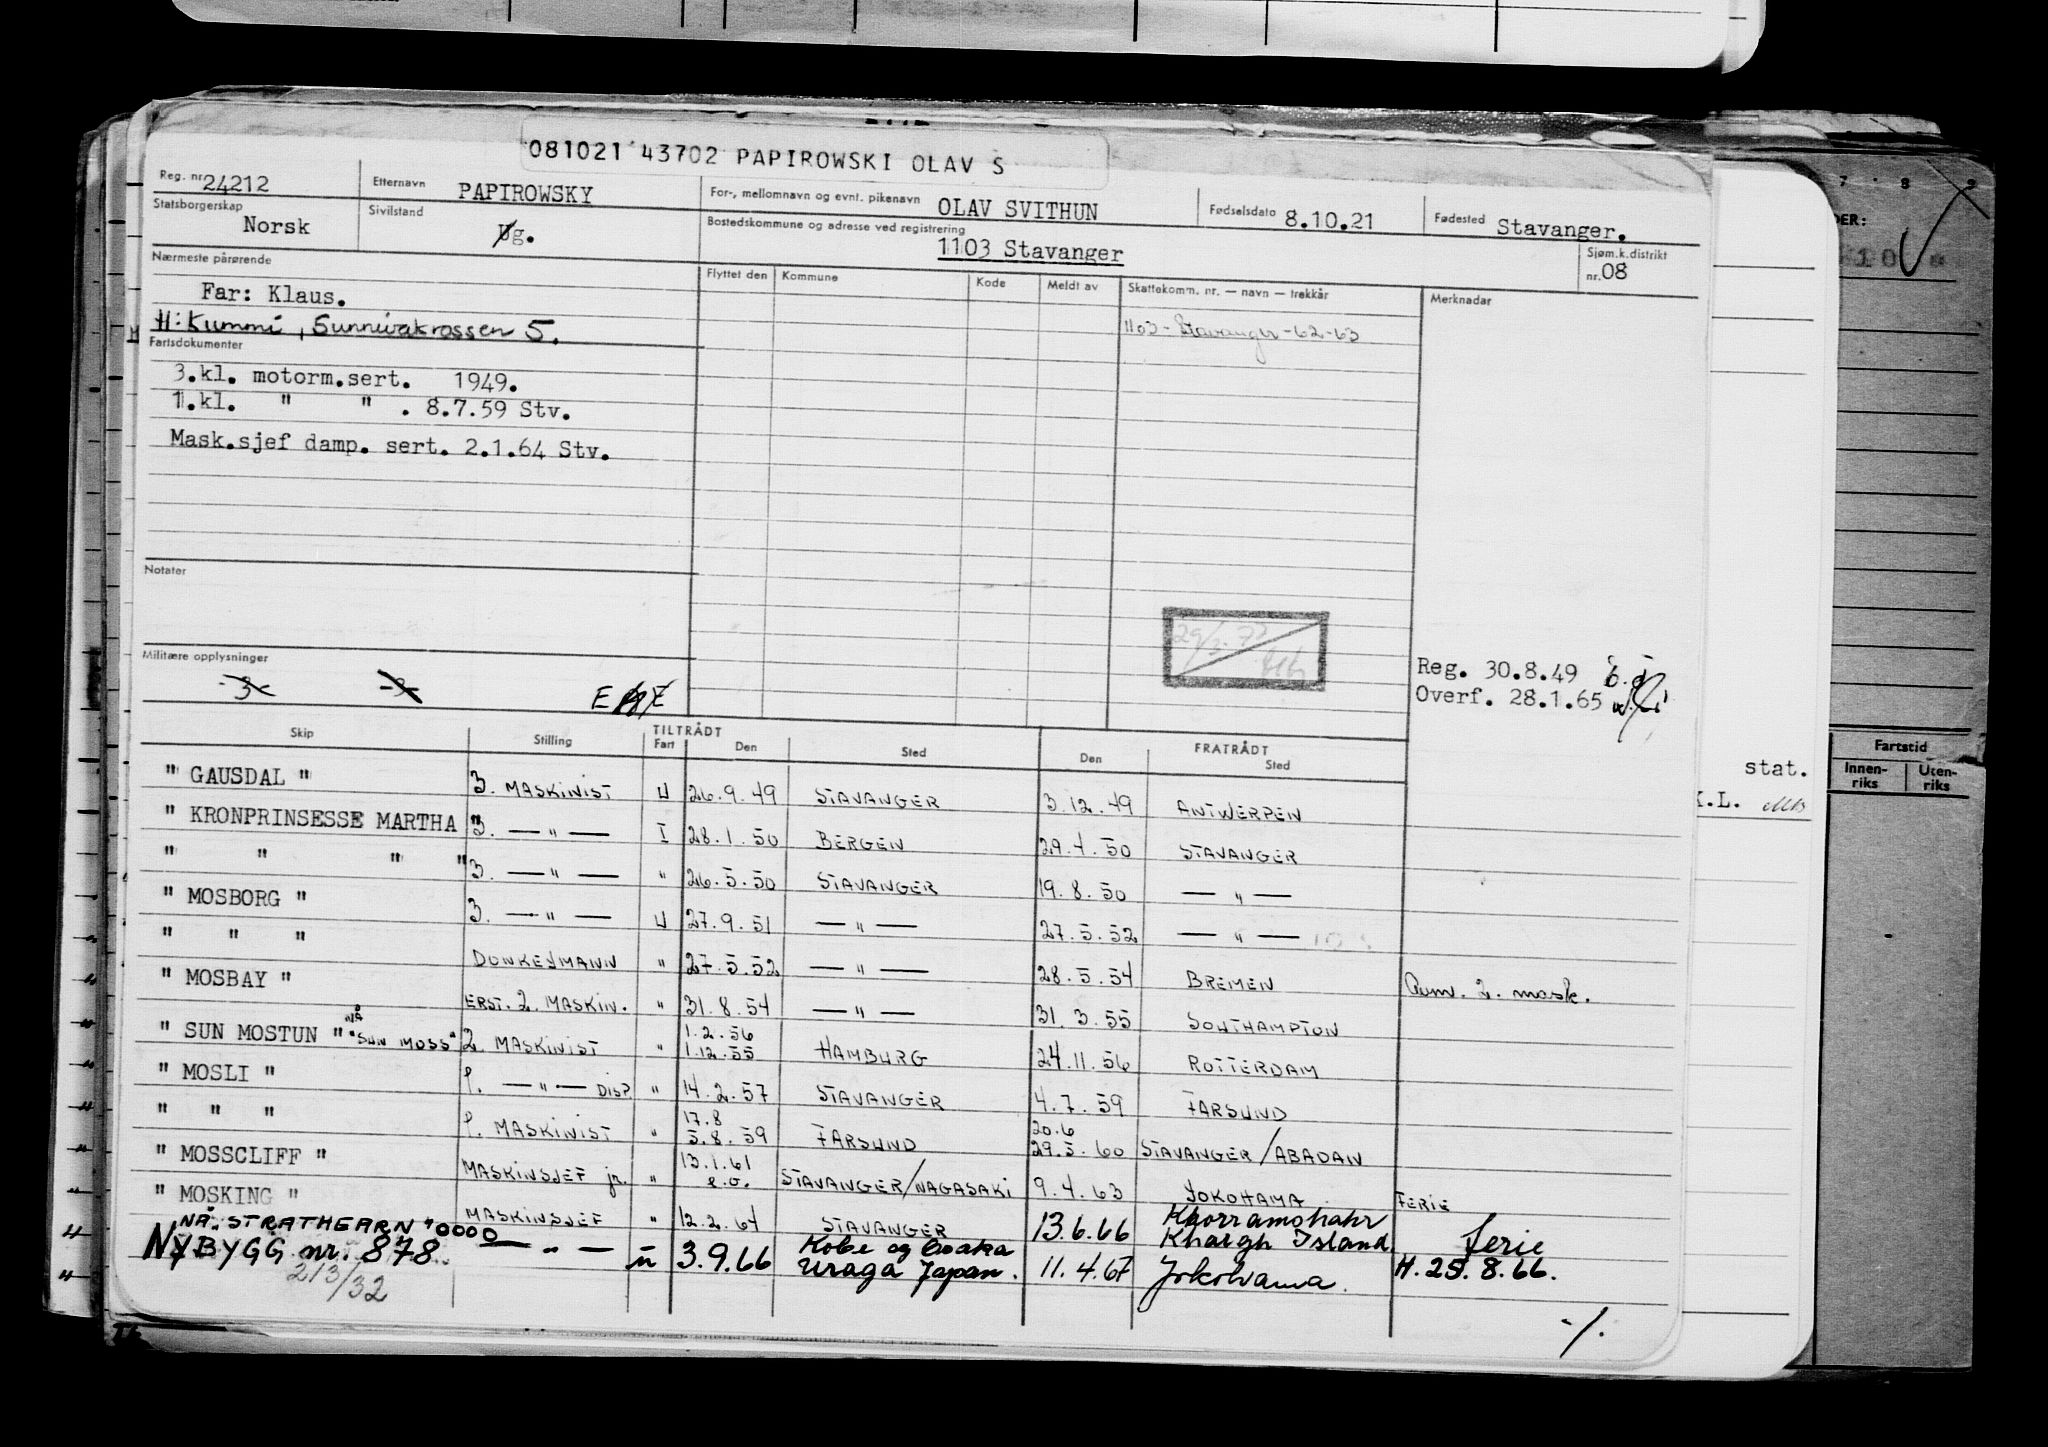 081021 43702 PAPIROWSKI OLAV S
Reg. nr. 24212 Etternavn PAPIROWSKY For-, mellomnavn og evnt. pikenavn OLAV SVITHUN Fødselsdato 8.10.21 Fødested Stavanger.
Statsborgerskap Norsk Sivilstand Ug. Bostedskommune og adresse ved registrering 1103 Stavanger Sjøm.k.distrikt nr. 08
Nærmeste pårørende Flyttet den Kommune Kode Meldt av Skattekomm. nr. — navn — trekkår Merknader
Far: Klaus.
H: Kummi, Sunnivakrossen 5. 1103 - Stavanger - 62 - 63
Fartsdokumenter
3.kl. motorm.sert. 1949.
1.kl. " " . 8.7.59 Stv.
Mask.sjef damp. sert. 2.1.64 Stv.
Notater
Militære opplysninger
Reg. 30.8.49
Overf. 28.1.65
Skip Stilling TILTRÅDT Fart Den Sted FRATRÅDT Den Sted
" GAUSDAL " 3. MASKINIST U 26.9.49 STAVANGER 3.12.49 ANTWERPEN
" KRONPRINSESSE MARTHA " 3. — " — I 28.1.50 BERGEN 29.4.50 STAVANGER
" " " " 3. — " — " 26.5.50 STAVANGER 19.8.50 — " —
" MOSBORG " 3. — " — U 27.9.51 — " — 27.5.52 — " —
" " " DONKEYMANN " 27.5.52 — " — 28.5.54 BREMEN Avm. 2. mask.
" MOSBAY " ERST. 2. MASKIN. " 31.8.54 — " — 31.3.55 SOUTHAMPTON
" SUN MOSTUN " NÅ "SUN MOSS" 2. MASKINIST " 1.2.56 1.12.55 HAMBURG 24.11.56 ROTTERDAM
" MOSLI " 1. — " — DISP. " 14.2.57 STAVANGER 4.7.59 FARSUND
" " " 1. MASKINIST " 17.8 5.8.59 FARSUND 20.6 29.5.60 STAVANGER/ABADAN
" MOSSCLIFF " MASKINSJEF jr. " 13.1.61 STAVANGER/NAGASAKI 9.4.63 YOKOHAMA FERIE
" MOSKING " MASKINSJEF " 12.2.64 STAVANGER 13.6.66 Khorramshahr Khargh Island ferie
NÅ. STRATHEARN
NYBYGG nr. 878 — " — u 3.9.66 Kobe og Osaka Uraga Japan. 11.4.67 Yokohama. H. 25.8.66.
213/32
-/.
DER:
Fartstid
Innen-riks Uten-riks
stat.
K.L.